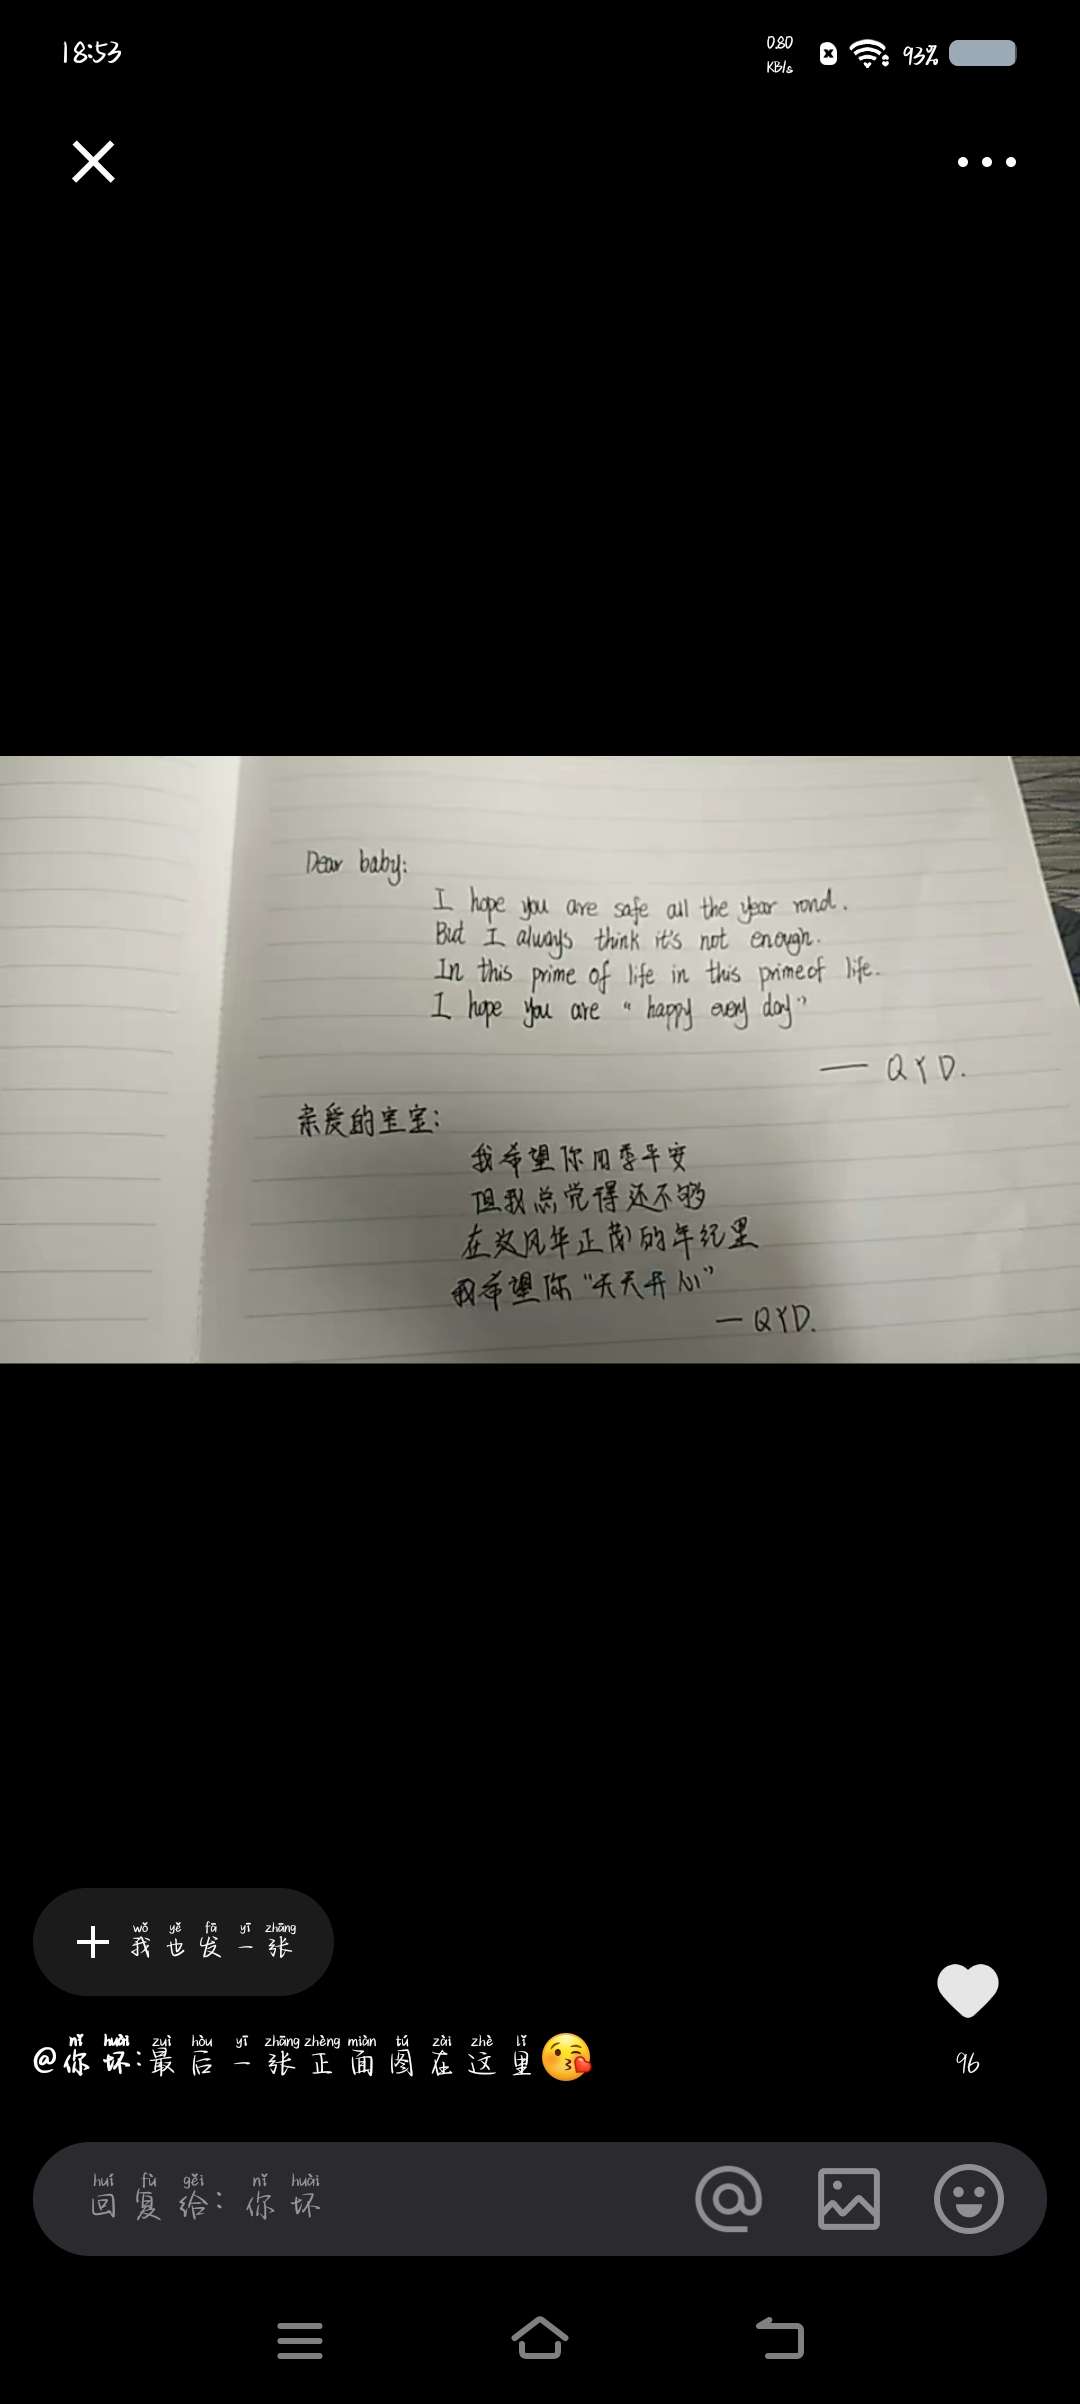 18:53
0.80
KB/s
93%
Dear baby:
I hope you are safe all the year rond.
But I always think it's not enough.
In this prime of life in this prime of life.
I hope you are “happy every day”
— QYD.
亲爱的宝宝:
我希望你四季平安
但我总觉得还不够
在这风华正茂的年纪里
我希望你“天天开心”
— QYD.
wǒ yě fā yī zhāng
我也发一张
nǐ huài zuì hòu yī zhāng zhèng miàn tú zài zhè lǐ
@你坏:最后一张正面图在这里😘
96
huí fù gěi nǐ huài
回复给:你坏